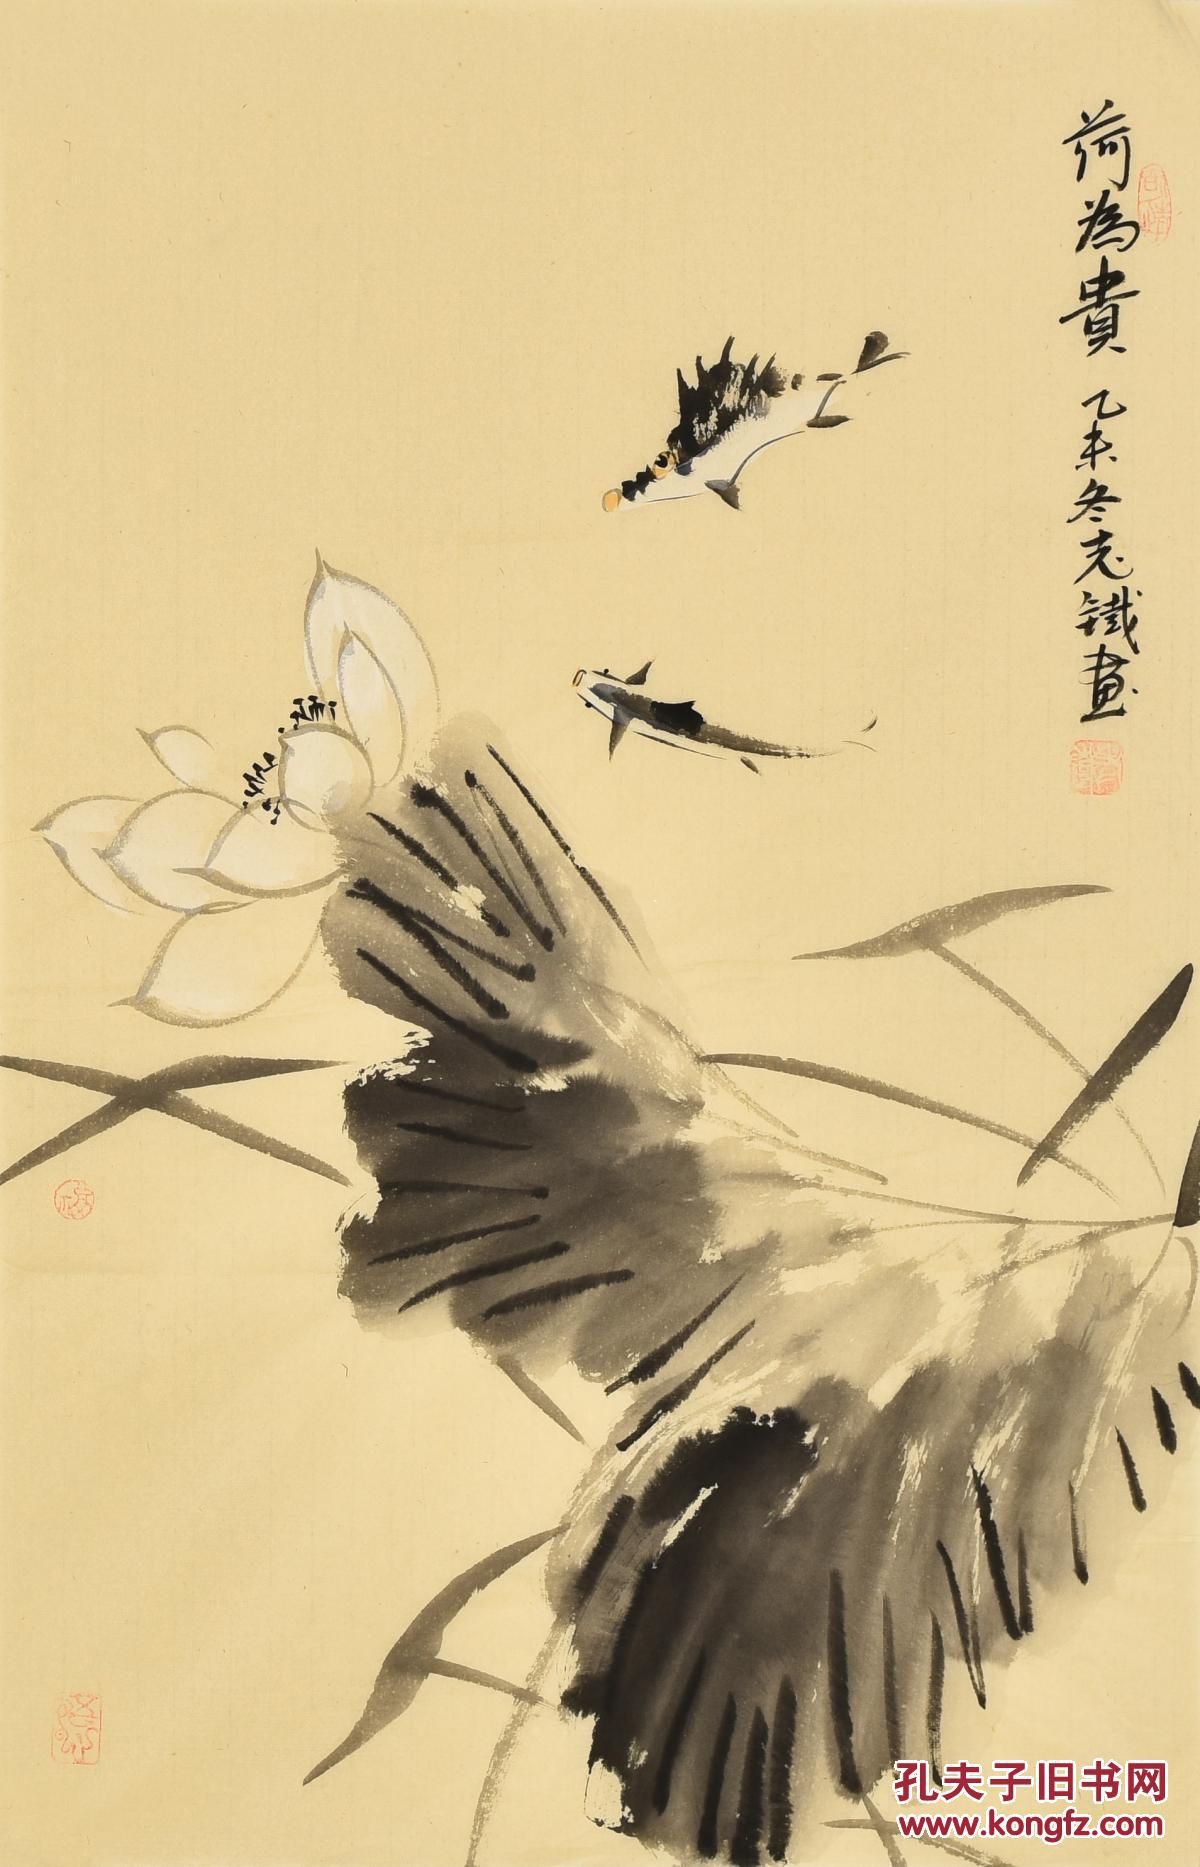 荷為貴 乙未冬志鐵畫
孔夫子旧书网
www.kongfz.com